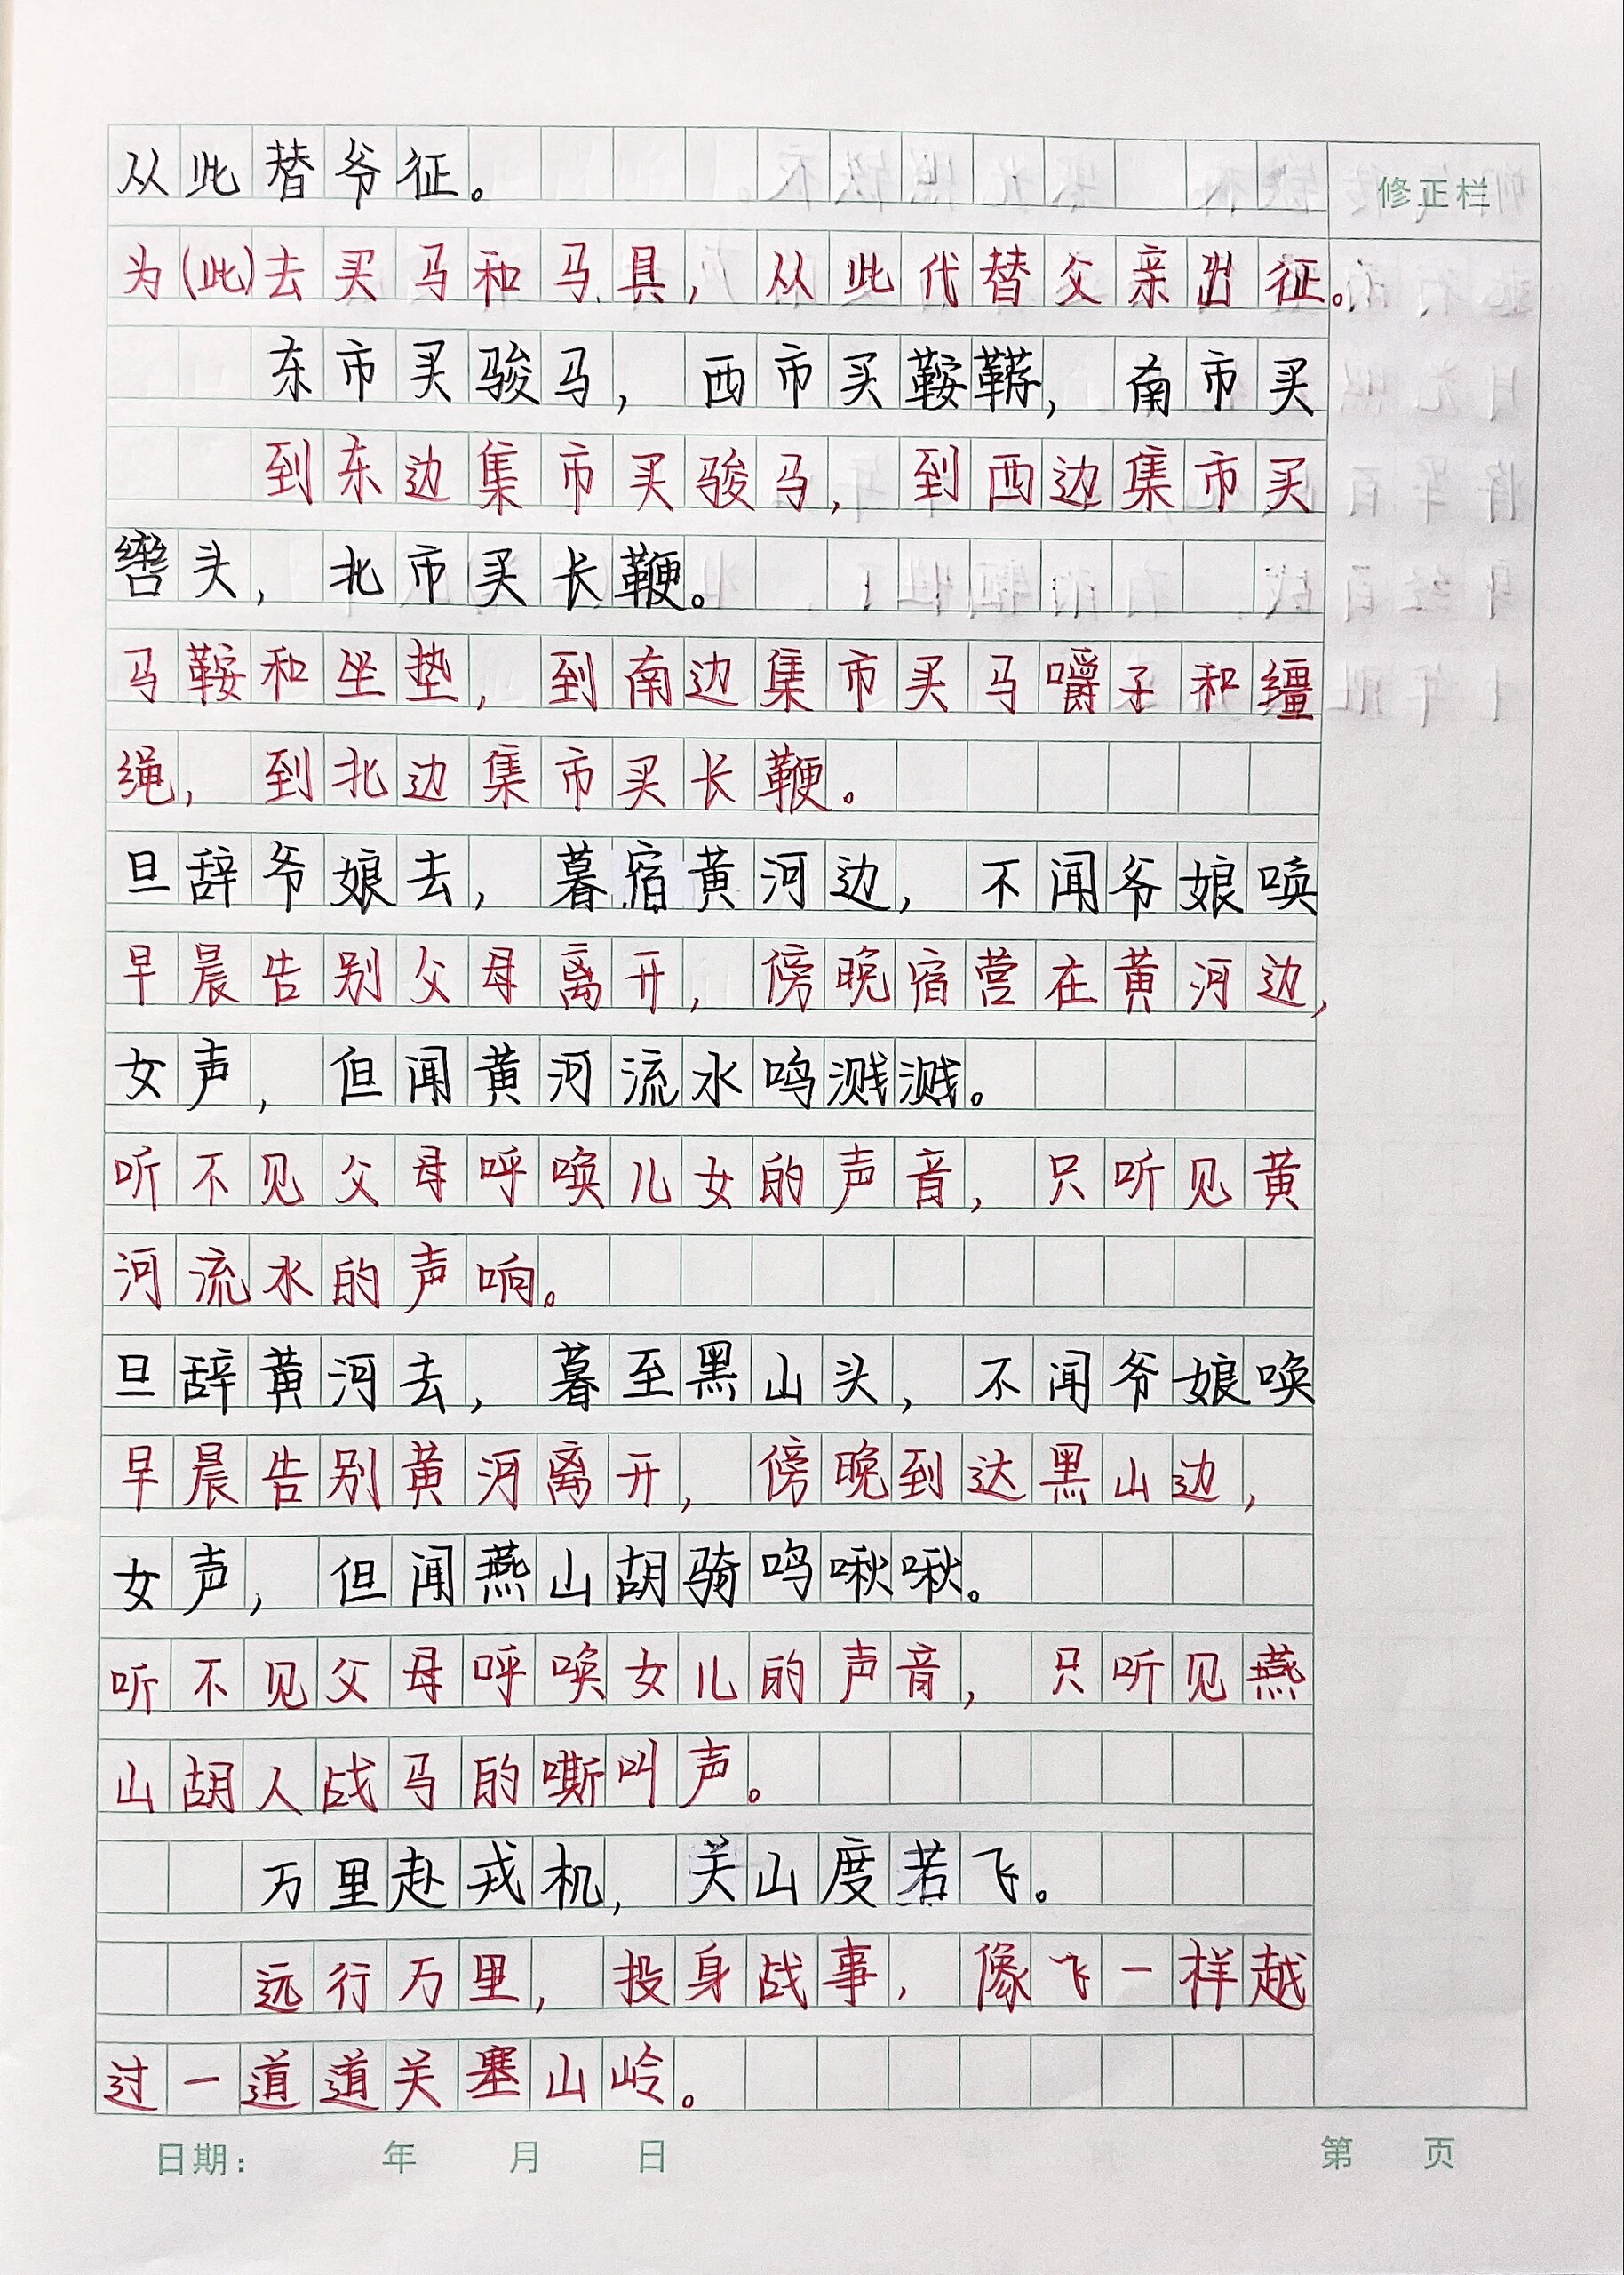 从此替爷征。
修正栏
为(此)去买马和马具，从此代替父亲出征。
东市买骏马，西市买鞍鞯，南市买
到东边集市买骏马，到西边集市买
辔头，北市买长鞭。
马鞍和坐垫，到南边集市买马嚼子和缰
绳，到北边集市买长鞭。
旦辞爷娘去，暮宿黄河边，不闻爷娘唤
早晨告别父母离开，傍晚宿营在黄河边，
女声，但闻黄河流水鸣溅溅。
听不见父母呼唤儿女的声音，只听见黄
河流水的声响。
旦辞黄河去，暮至黑山头，不闻爷娘唤
早晨告别黄河离开，傍晚到达黑山边，
女声，但闻燕山胡骑鸣啾啾。
听不见父母呼唤女儿的声音，只听见燕
山胡人战马的嘶叫声。
万里赴戎机，关山度若飞。
远行万里，投身战事，像飞一样越
过一道道关塞山岭。
日期： 年 月 日 第 页